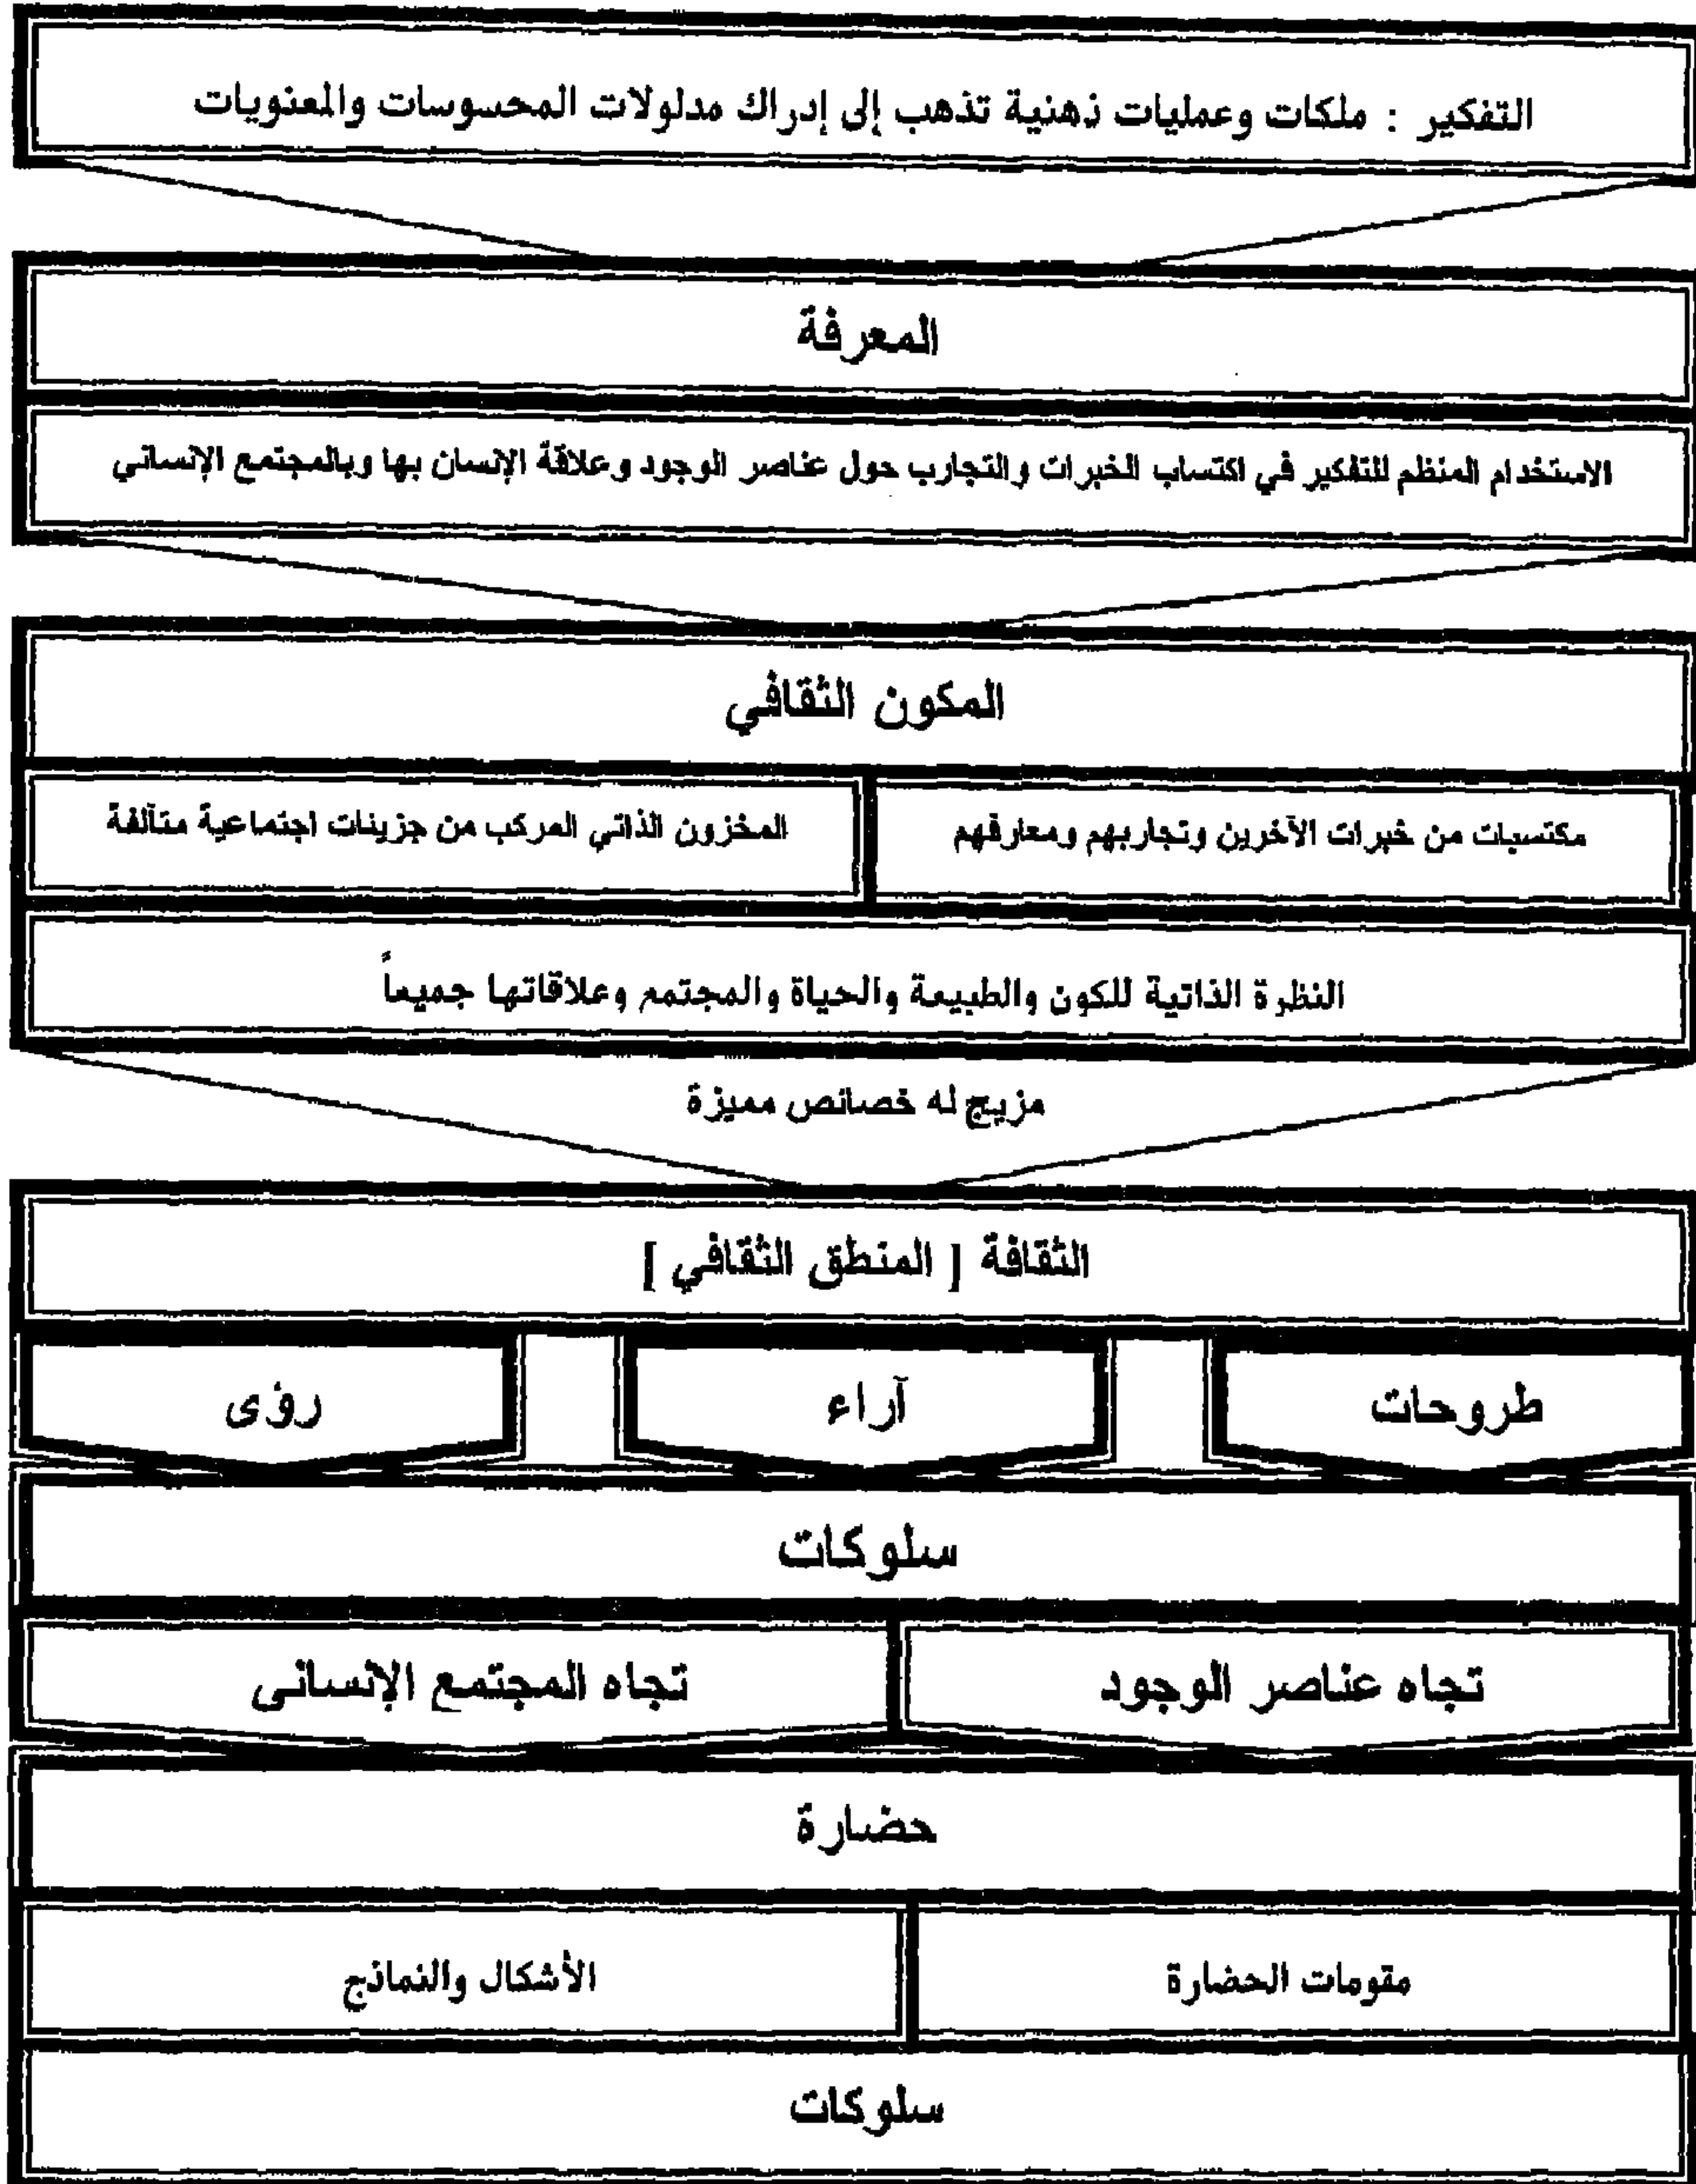 التفكير : ملكات وعمليات ذهنية تذهب إلى إدراك مدلولات المحسوسات والمعنويات
المعرفة
الاستخدام المنظم للتفكير في اكتساب الخبرات والتجارب حول عناصر الوجود وعلاقة الإنسان بها وبالمجتمع الإنساني
المكون الثقافي
مكتسبات من خبرات الآخرين وتجاربهم ومعارفهم
المخزون الذاتي المركب من جزيئات اجتماعية متآلفة
النظرة الذاتية للكون والطبيعة والحياة والمجتمع وعلاقاتها جميعاً
مزيج له خصائص مميزة
الثقافة [ المنطق الثقافي ]
طروحات
آراء
رؤى
سلوكات
تجاه عناصر الوجود
تجاه المجتمع الإنسانى
حضارة
مقومات الحضارة
الأشكال والنماذج
سلوكات